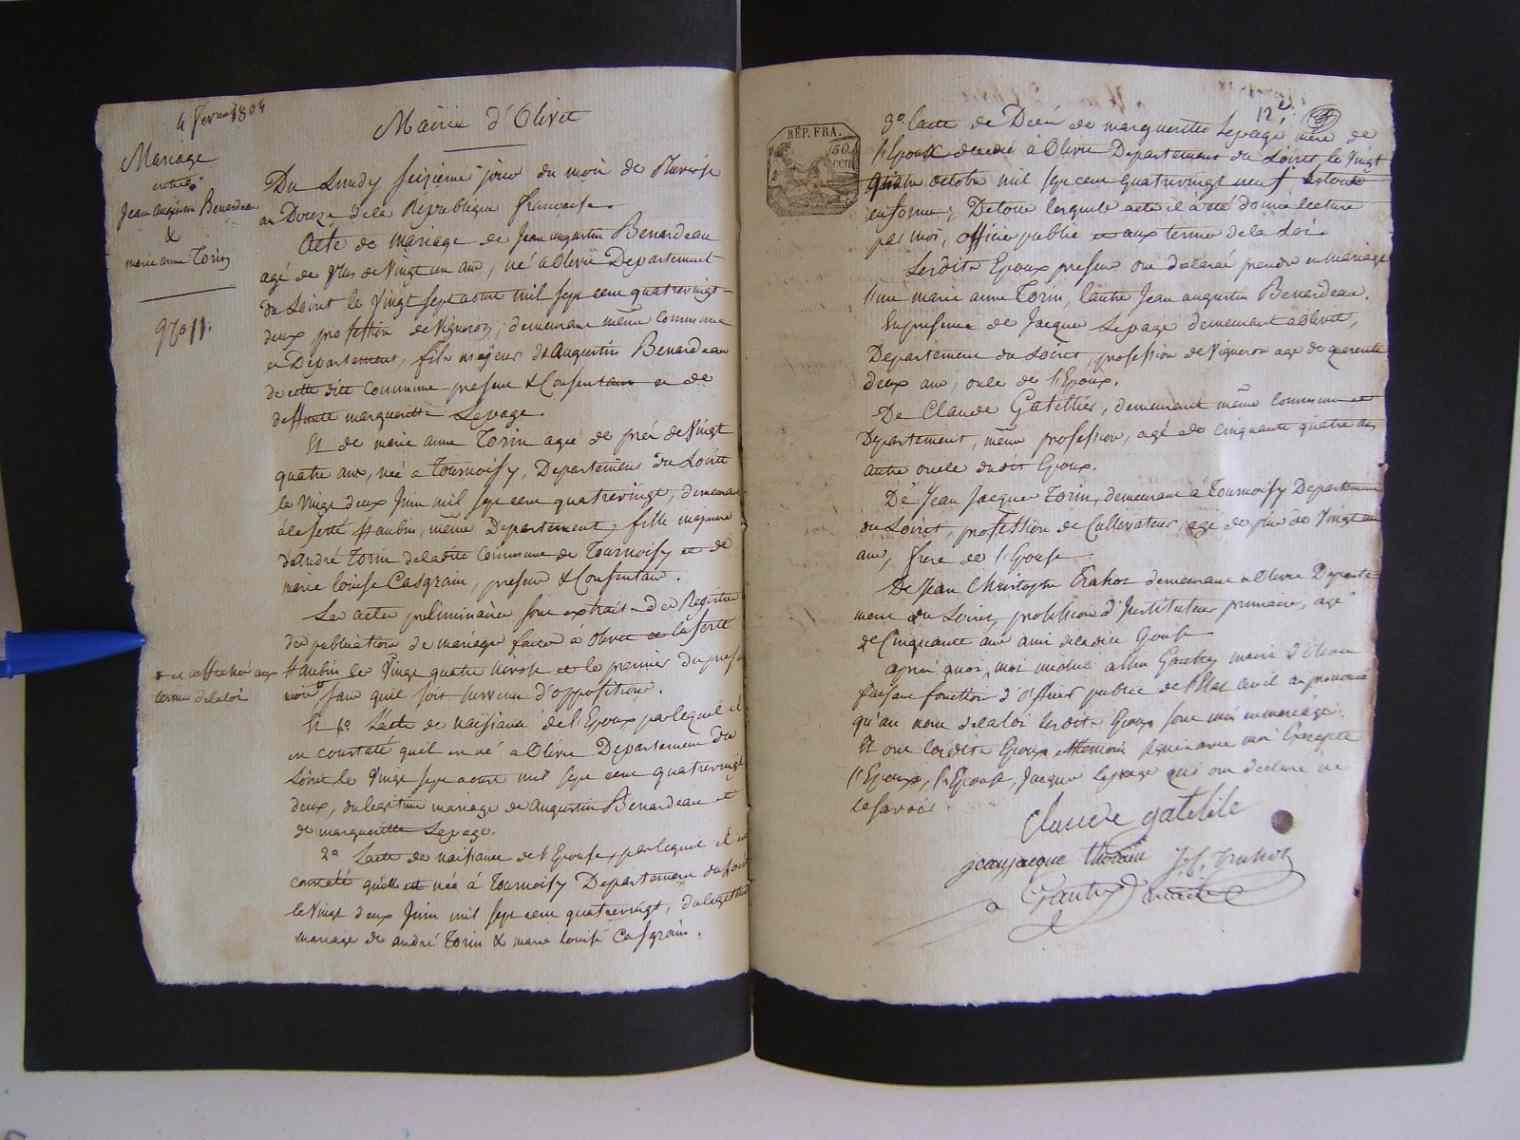 4 fevrier 1804
Mariage
entre
Jean augustin Benardeau
&
marie anne Torin
Mairie d'Olivet
Du Lundy seizieme jour du mois de Pluviose
an Douze dela Republique francaise.
Acte de mariage de Jean augustin Benardeau
agé de plus de Vingt un ans, né a Olivet Departement
du Loiret le Vingt sept aoust mil sept cent quatrevingt
deux profession de Vigneron, demeurant même commune
et Departement, fils majeur de Augustin Benardeau
de cette dite commune present & Consentant et de
deffunte margueritte Lepage.
Et de marie anne Torin agée de près de Vingt
quatre ans, née a Tournoisy, Departement du Loiret
le Vingt deux Juin mil sept cent quatrevingt, demeurant
a la ferté St aubin, même Departement, fille majeure
d'andré Torin deladite Commune de Tournoisy et de
marie louise Casgrain, present & Consentant.
Les actes preliminaires sont extraits des Registres
des publications de mariages faites à Olivet et la ferté
St aubin le Vingt quatre nivose et le premier du present
mois sans quil soit survenu d'opposition.
et affiché aux
termes de la loi
Et 1o L'acte de naissance de l'Epoux par lequel il
est constaté quil est né a Olivet Departement du
Loiret le Vingt sept aoust mil sept cent quatrevingt
deux, du legitime mariage de augustin Benardeau et
de margueritte Lepage.
2o L'acte de naissance de l'Epouse par lequel il est
constaté qu'elle est née à Tournoisy Departement du Loiret
le Vingt deux Juin mil sept cent quatrevingt, du legitime
mariage de andré Torin & marie louise Casgrain.
12e
RÉP. FRA.
50
cen
3o l'acte de Décès de margueritte Lepage mère de
l'Epoux decedée à Olivet Departement du Loiret le Vingt
quatre octobre mil sept cent quatrevingt neuf
en forme; De tous lesquels actes il a été donné lecture
par moi, officier public aux termes de la Loi.
Lesdits Epoux presents ont declaré prendre en mariage
l'une marie anne Torin, l'autre Jean augustin Benardeau.
En presence de Jacques Lepage demeurant a Olivet,
Departement du Loiret, profession de Vigneron agé de quarente
deux ans, oncle de l'Epoux.
De Claude Gatellier, demeurant même commune et
Departement, même profession, agé de cinquante quatre ans
autre oncle dudit Epoux.
De Jean Jacques Torin, demeurant à Tournoisy Departement
du Loiret, profession de Cultivateur, agé de plus de Vingt un
ans, frere de l'Epouse
De Jean Christophe Trahot demeurant a Olivet Departe-
ment du Loiret, profession d'Instituteur primaire, agé
de Cinquante ans ami deladite Epouse
après quoi, moi maire d'Olivet
faisant fonction d'officier public de l'Etat civil ai prononcé
qu'au nom dela loi lesdits Epoux sont unis en mariage.
Et ont lesdits Epoux et temoins signé avec moi Excepté
l'Epoux, l'Epouse, Jacques Lepage qui ont declaré ne
le savoir
Claude gatellile
jean jacque thorain J. C. Trahot
maire